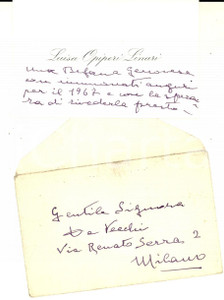 Luisa Opiperi Linari
una Befana Genovese
con immancati auguri
per il 1967 e con la spera
ra di rivederla presto
Gentile Signora
De Vecchi
Via Renato Serra 2
Milano